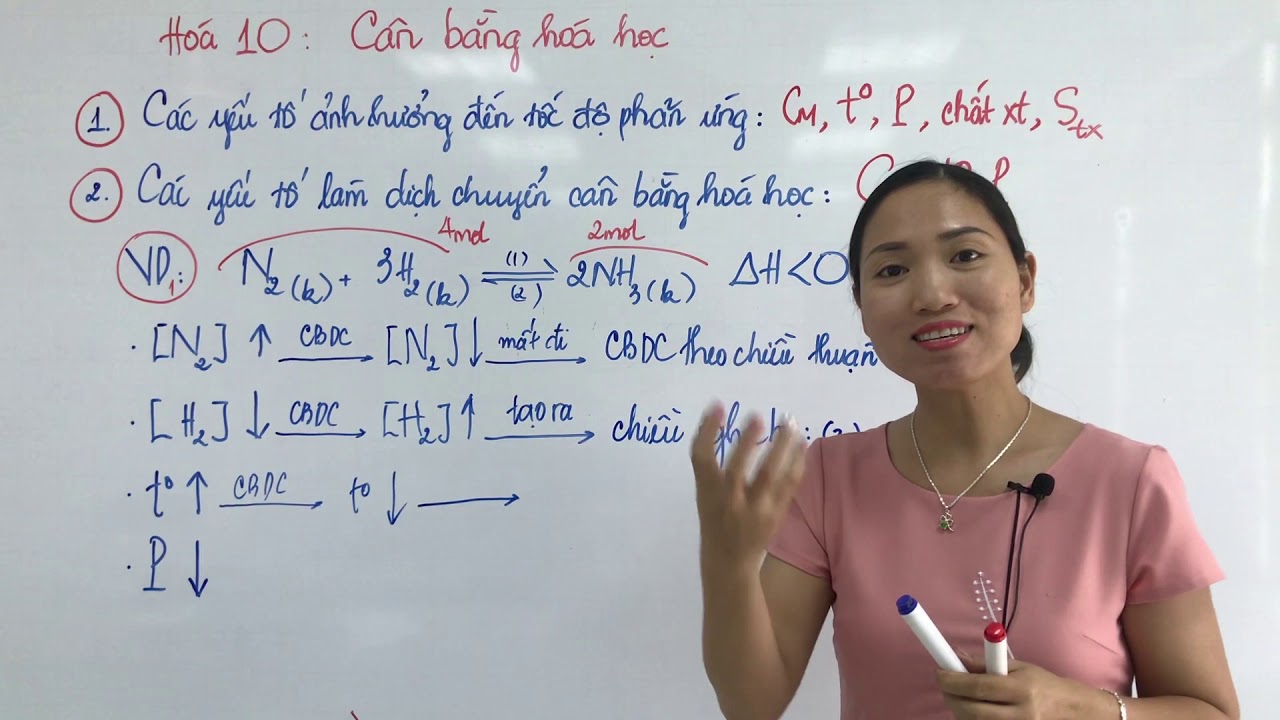 Hoá 10: Cân bằng hoá học
1. Các yếu tố ảnh hưởng đến tốc độ phản ứng: CM, t°, P, chất xt, Stx
2. Các yếu tố làm dịch chuyển cân bằng hoá học: C P
4mol 2mol
VD1: N2(k) + 3H2(k) ⇌ 2NH3(k) ΔH<0
(1)
(2)
· [N2] ↑ CBDC → [N2] ↓ mất đi → CBDC theo chiều thuận
· [H2] ↓ CBDC → [H2] ↑ tạo ra → chiều
· t° ↑ CBDC → t° ↓ →
· P ↓